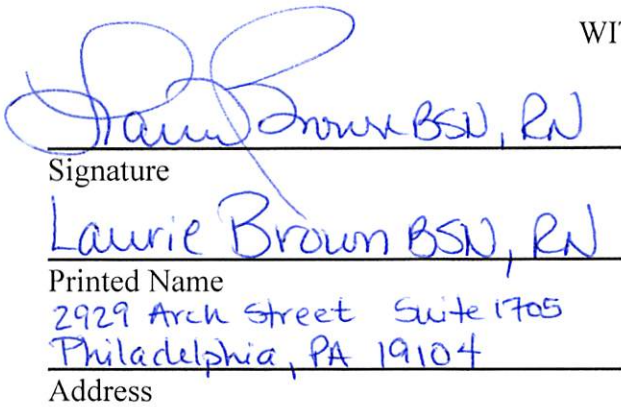 WIT
Laurie Brown BSN, RN
Signature
Laurie Brown BSN, RN
Printed Name
2929 Arch Street Suite 1705
Philadelphia, PA 19104
Address